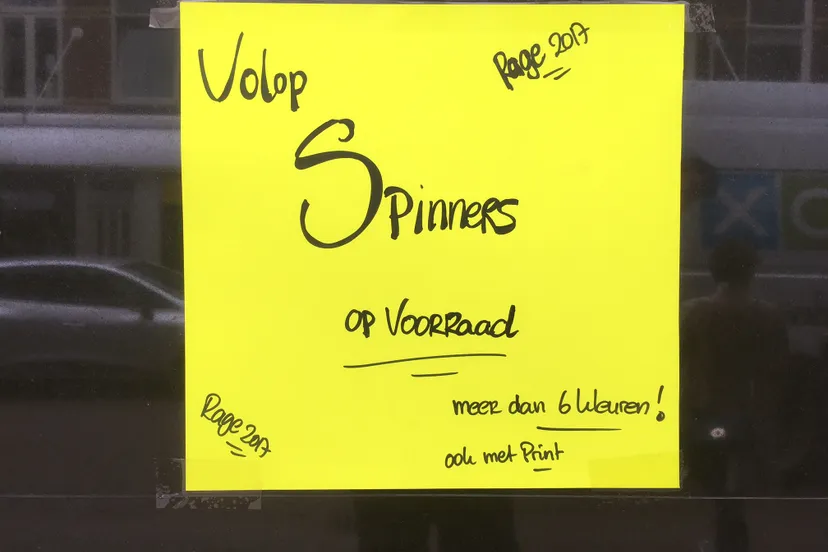 Volop
Rage 2017
Spinners
op Voorraad
meer dan 6 kleuren!
ook met Print
Rage 2017